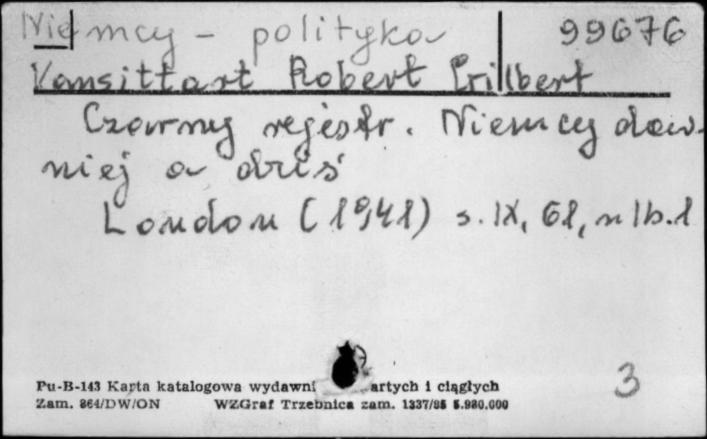 Niemcy - polityka 99676
Vansittart Robert Gilbert
Czarny rejestr. Niemcy daw-
niej a dziś
London (1941) s. IX, 61, nlb. 1
3
Pu-B-143 Karta katalogowa wydawni artych i ciągłych
Zam. 864/DW/ON WZGraf Trzebnica zam. 1337/85 5.980.000